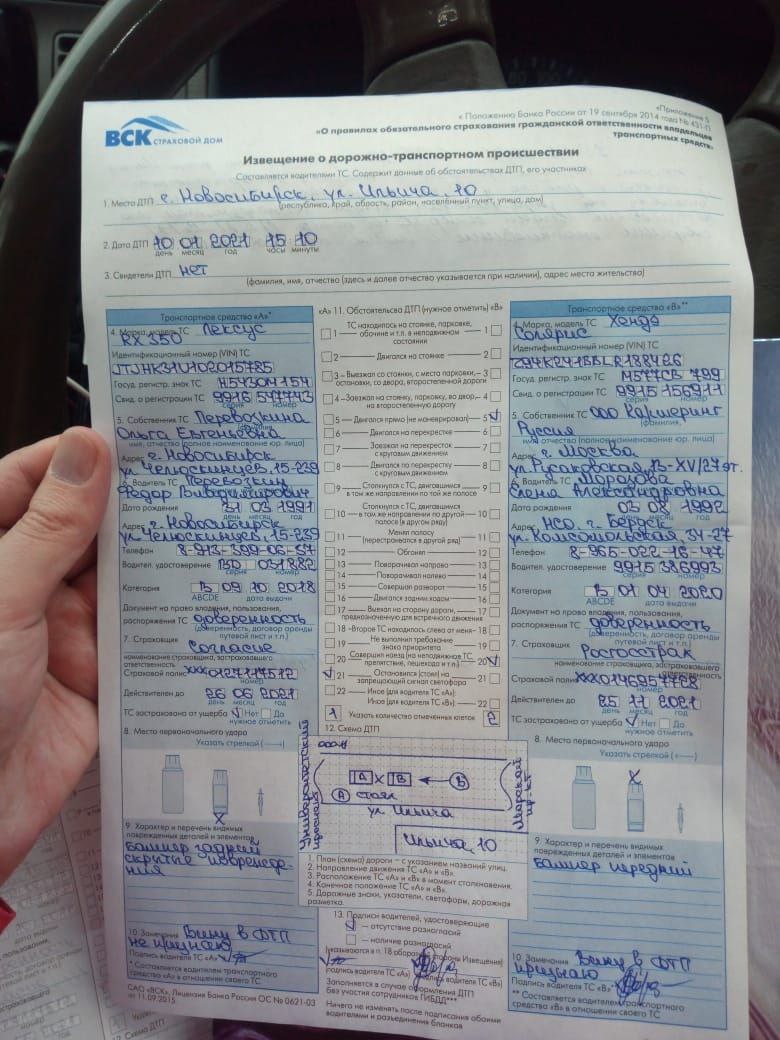 «Приложение 5
к Положению Банка России от 19 сентября 2014 года № 431-П
«О правилах обязательного страхования гражданской ответственности владельцев
транспортных средств»
ВСК СТРАХОВОЙ ДОМ
Извещение о дорожно-транспортном происшествии
Составляется водителями ТС. Содержит данные об обстоятельствах ДТП, его участниках
1. Место ДТП г. Новосибирск, ул. Ильича, 10
(республика, край, область, район, населённый пункт, улица, дом)
2. Дата ДТП 10 01 2021 15 10
день месяц год часы минуты
3. Свидетели ДТП нет
(фамилия, имя, отчество (здесь и далее отчество указывается при наличии), адрес места жительства)
Транспортное средство «А»*
4. Марка, модель ТС Лексус
RX 350
Идентификационный номер (VIN) ТС
Госуд. регистр. знак ТС Н543ОМ154
Свид. о регистрации ТС 9916 547743
серия номер
5. Собственник ТС Перевозкина
Ольга Евгеньевна
имя, отчество (полное наименование юр. лица)
Адрес г. Новосибирск
ул. Челюскинцев, 15-239
6. Водитель ТС Перевозкин
Федор Владимирович
31 03 1991
день месяц год
Адрес г. Новосибирск
ул. Челюскинцев, 15-239
Телефон 8-913-399-06-37
Водител. удостоверение
серия номер
Категория В 09 10 2018
ABCDE дата выдачи
Документ на право владения, пользования,
распоряжения ТС доверенность
(доверенность, договор аренды
путевой лист и т.п.)
7. Страховщик
Согласие
наименование страховщика, застраховавшего
ответственность
Страховой полис ХХХ 0127117512
номер
Действителен до 26 06 2021
день месяц год
ТС застраховано от ущерба Нет Да
нужное отметить
8. Место первоначального удара
Указать стрелкой (→)
9. Характер и перечень видимых
поврежденных деталей и элементов
Бампер задний
скрытые поврежде-
ния
10. Замечания Вину в ДТП
не признаю
Подпись водителя ТС «А»
* Составляется водителем транспортного
средства «А» в отношении своего ТС
«А» 11. Обстоятельства ДТП (нужное отметить) «В»
1 ТС находилось на стоянке, парковке,
обочине и т.п. в неподвижном
состоянии 1
2 — Двигался на стоянке — 2
3 — Выезжал со стоянки, с места парковки, — 3
остановки, со двора, второстепенной дороги
4 — Заезжал на стоянку, парковку, во двор — 4
на второстепенную дорогу
5 — Двигался прямо (не маневрировал) — 5
6 — Двигался на перекрестке — 6
7 Заезжал на перекресток
с круговым движением 7
8 Двигался по перекрестку
с круговым движением 8
9 Столкнулся с ТС, двигавшимся
в том же направлении по той же полосе 9
10 Столкнулся с ТС, двигавшимся
в том же направлении по другой
полосе (в другом ряду) 10
11 Менял полосу
(перестраивался в другой ряд) 11
12 — Обгонял — 12
13 — Поворачивал направо — 13
14 — Поворачивал налево — 14
15 — Совершал разворот — 15
16 — Двигался задним ходом — 16
17 — Выехал на сторону дороги, — 17
предназначенную для встречного движения
18 — Второе ТС находилось слева от меня — 18
19 Не выполнил требование
знака приоритета 19
20 Совершил наезд (на неподвижное ТС,
препятствие, пешехода и т.п.) 20
21 Остановился (стоял) на
запрещающий сигнал светофора 21
22 Иное (для водителя ТС «А»)
Иное (для водителя ТС «В») 22
1 Указать количество отмеченных клеток 2
12. Схема ДТП
Университетский
проспект
А В В
А стоял
ул. Ильича
Морской
пр-кт
Ильича, 10
1. План (схема) дороги – с указанием названий улиц.
2. Направление движения ТС «А» и «В».
3. Расположение ТС «А» и «В» в момент столкновения.
4. Конечное положение ТС «А» и «В».
5. Дорожные знаки, указатели, светофоры, дорожная
разметка.
13. Подписи водителей, удостоверяющие
— отсутствие разногласий
— наличие разногласий
(указываются в п. 18 оборотной стороны Извещения)
подпись водителя ТС «А» подпись водителя ТС «В»
Заполняется в случае оформления ДТП
без участия сотрудников ГИБДД***
Ничего не изменять после подписания обоими
водителями и разъединения бланков
Транспортное средство «В»**
4. Марка, модель ТС Хендэ
Солярис
Идентификационный номер (VIN) ТС
Госуд. регистр. знак ТС М577СВ 799
Свид. о регистрации ТС 9915 156911
серия номер
5. Собственник ТС ООО Каршеринг
Руссия
имя, отчество (полное наименование юр. лица)
Адрес г. Москва
ул. Русаковская, 13
6. Водитель ТС Морозова
Елена Александровна
03 08 1992
день месяц год
Адрес НСО, г. Бердск
ул. Комсомольская, 34-27
Телефон 8-965-022-16-47
Водител. удостоверение 9915 386993
серия номер
Категория В 01 04 2020
ABCDE дата выдачи
Документ на право владения, пользования,
распоряжения ТС доверенность
(доверенность, договор аренды
путевой лист и т.п.)
7. Страховщик
Росгосстрах
наименование страховщика, застраховавшего
ответственность
Страховой полис ХХХ 0146957728
номер
Действителен до 25 11 2021
день месяц год
ТС застраховано от ущерба Нет Да
нужное отметить
8. Место первоначального удара
Указать стрелкой (←)
9. Характер и перечень видимых
поврежденных деталей и элементов
Бампер передний
10. Замечания Вину в ДТП
признаю
Подпись водителя ТС «В»
** Составляется водителем транспортного
средства «В» в отношении своего ТС
САО «ВСК», Лицензии Банка России ОС № 0621-03
от 11.09.2015